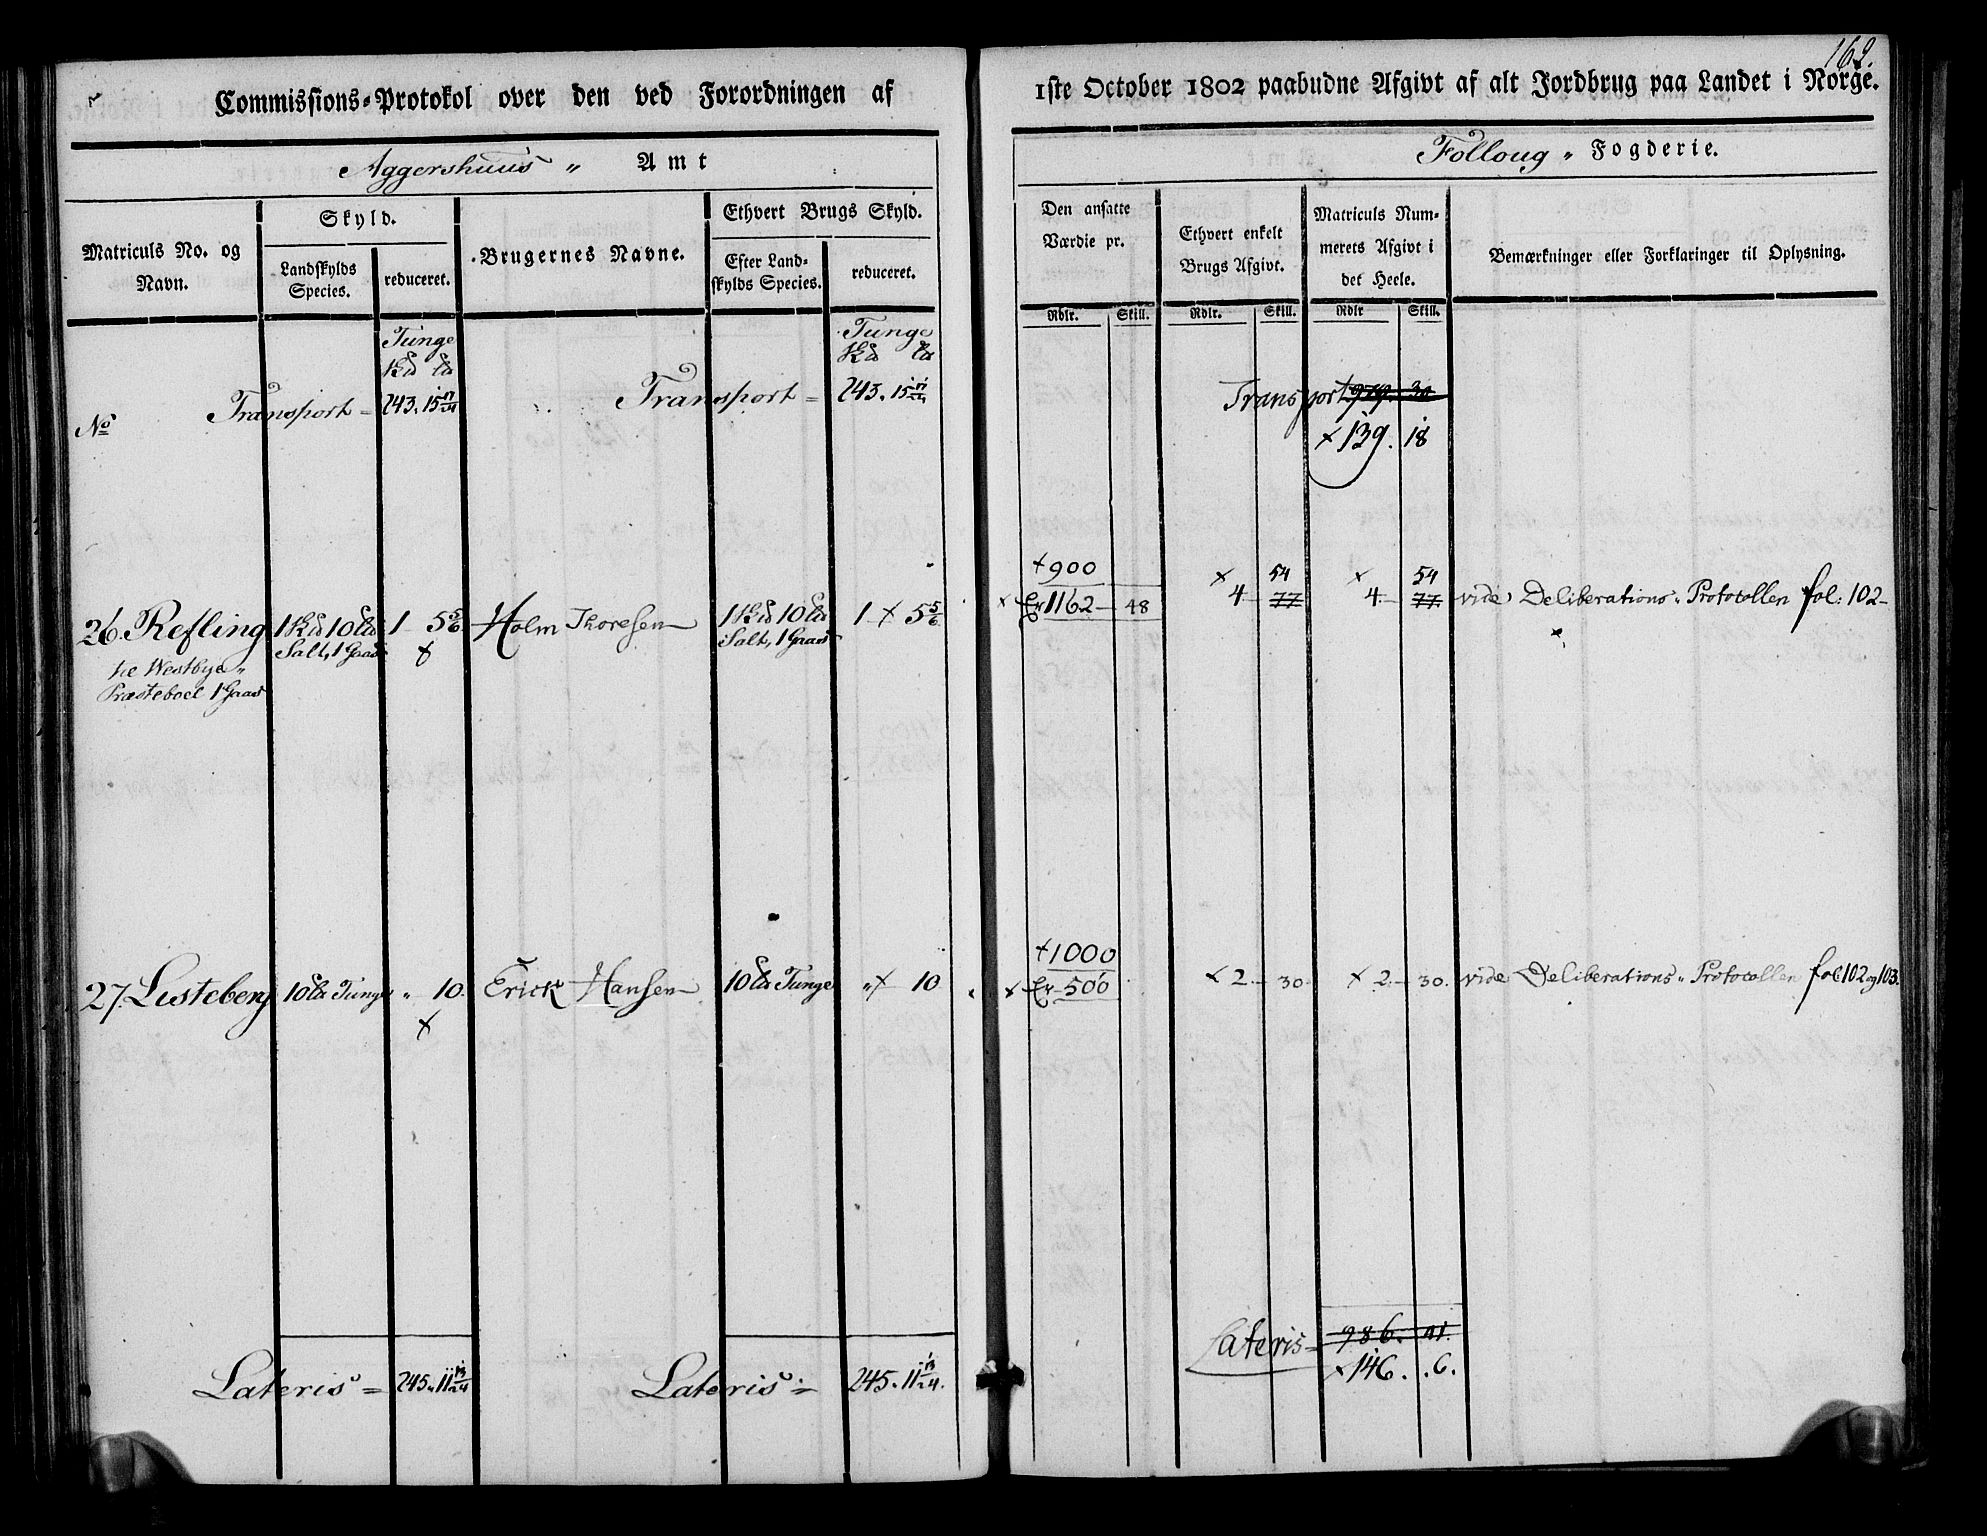 162.
Commissions-Protokol over den ved Forordningen af
1ste October 1802 paabudne Afgivt af alt Jordbrug paa Landet i Norge.
Aggershuus „ Amt
Folloug „ Fogderie.
Matriculs No. og Navn.
Skyld.
Landskylds Species.
reduceret.
Brugernes Navne.
Ethvert Brugs Skyld.
Efter Landskylds Species.
reduceret.
Den ansatte Værdie pr.
Ethvert enkelt Brugs Afgivt.
Matriculs Nummerets Afgivt i det Heele.
Bemærkninger eller Forklaringer til Oplysning.
Rdlr. Skill. Rdlr. Skill. Rdlr Skill.
Tunge Tunge
No Transport = 243. 15 17/24 Transport = 243. 15 17/24 Transport 979. 30
× 139. 18
+ 900 54 54
26. Refling 1 10 1 5 5/6 Holm Thoresen 1 10 1 × 5 5/6 × 1162 48 × 4 77 × 4 77 vide Deliberations „ Protocollen fol: 102
Salt, 1 Gaas × Salt, 1 Gaas
Westbye „
Præsteboel 1 Gaard
+ 1000
27. Listeberg 10 Tunge „ 10. Erick Hansen 10 Tunge „ × 10 × 500 × 2 30 × 2 30. vide Deliberations „ Protocollen fol 102 og 103.
×
Lateris = 245. 11 13/24 Lateris = 245. 11 13/24. Lateris = 986. 41.
× 146. 6.